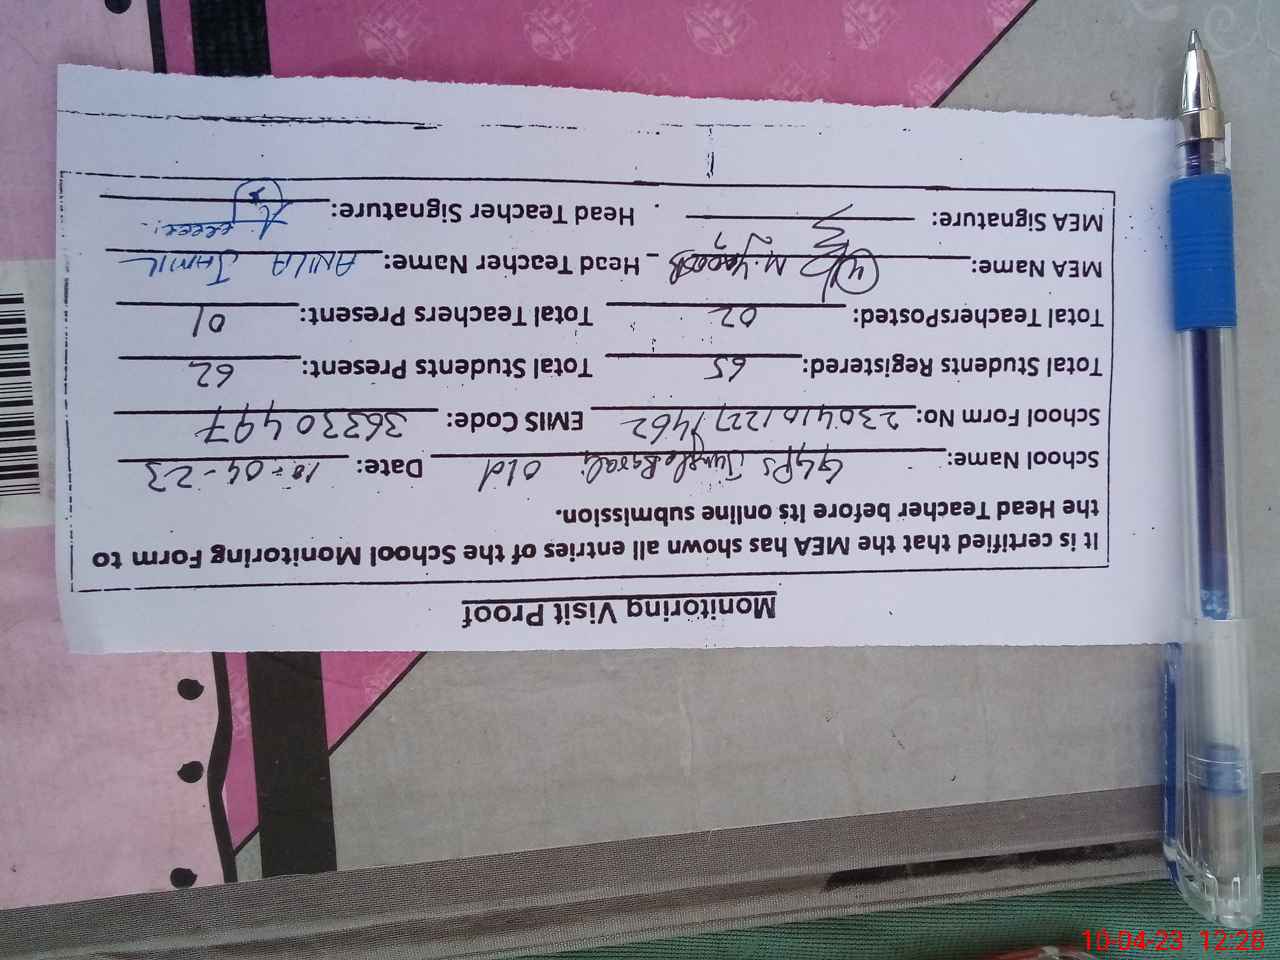 Monitoring Visit Proof
It is certified that the MEA has shown all entries of the School Monitoring Form to
the Head Teacher before its online submission.
School Name: GGPS Old Date: 10-04-23
School Form No: EMIS Code: 36330497
Total Students Registered: 65 Total Students Present: 62
Total TeachersPosted: 02 Total Teachers Present: 01
MEA Name: M. Yaqoob Head Teacher Name: ANILA JAMIL
MEA Signature: Head Teacher Signature:
10-04-23 12:28